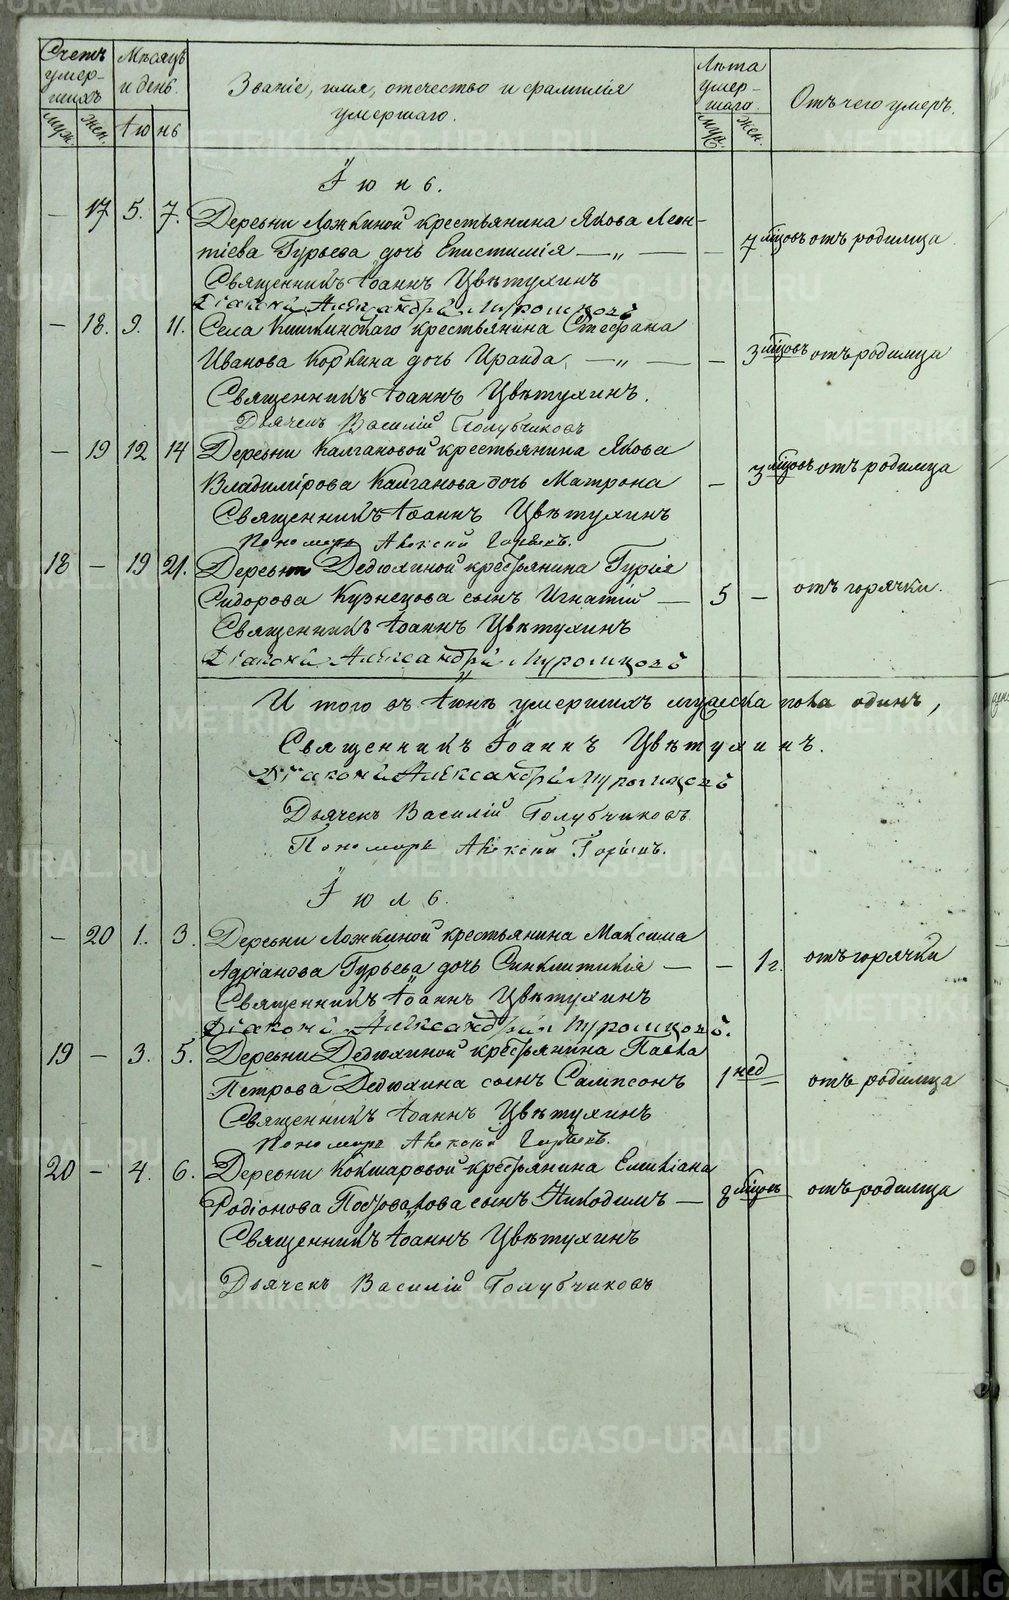 Счетъ умер-шихъ
Мѣсяцъ и день.
Званіе, имя, отечество и фамилія умершаго.
Лѣта умер-шаго.
Отъ чего умеръ.
муж. жен. Ію нь муж. жен.
Іюнь.
— 17 5. 7. Деревни Ложкиной крестьянина Якова Леон-
тіева Гурьева дочь Епистимія — „ — — 7 мѣсцовъ отъ родимца.
Священникъ Іоаннъ Цвѣтухинъ
Діаконъ Александръ
— 18. 9. 11. Села крестьянина Стефана
Иванова Коркина дочь Ираида, — „ — — 3 мѣсцовъ отъ родимца
Священникъ Іоаннъ Цвѣтухинъ.
Дьячекъ Василій Голубчиковъ
— 19 12 14 Деревни Калгановой крестьянина Якова
Владимірова Калганова дочь Матрона — 3 мѣсцовъ отъ родимца
Священникъ Іоаннъ Цвѣтухинъ
Пономарь Алексѣй
18 — 19 21. Деревни Дедюхиной крестьянина Гурія
Сидорова Кузнецова сынъ Игнатій — 5 — отъ горячки.
Священникъ Іоаннъ Цвѣтухинъ
Діаконъ Александръ
И того въ Іюнѣ умершихъ мужеска пола одинъ,
Священникъ Іоаннъ Цвѣтухинъ.
Діаконъ Александръ
Дьячекъ Василій Голубчиковъ
Пономарь Алексѣй
Іюль.
— 20 1. 3. Деревни Ложкиной крестьянина Максима
Адріанова Гурьева дочь Синклитикія — — 1 г. отъ горячки
Священникъ Іоаннъ Цвѣтухинъ
Діаконъ Александръ
19 — 3. 5. Деревни Дедюхиной крестьянина Павла
Петрова Дедюхина сынъ Сампсонъ 1 нед отъ родимца
Священникъ Іоаннъ Цвѣтухинъ
Пономарь Алексѣй
20 — 4. 6. Деревни Кокшаровой крестьянина Емиліана
Родіонова сынъ Никодимъ — 8 мѣсцовъ отъ родимца
Священникъ Іоаннъ Цвѣтухинъ
Дьячекъ Василій Голубчиковъ
METRIKI.GASO-URAL.RU